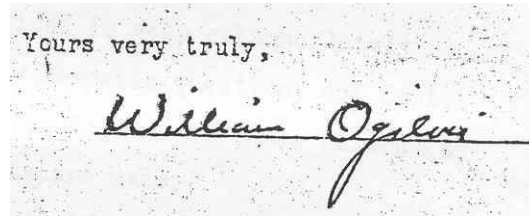 Yours very truly,
William Ogilvie